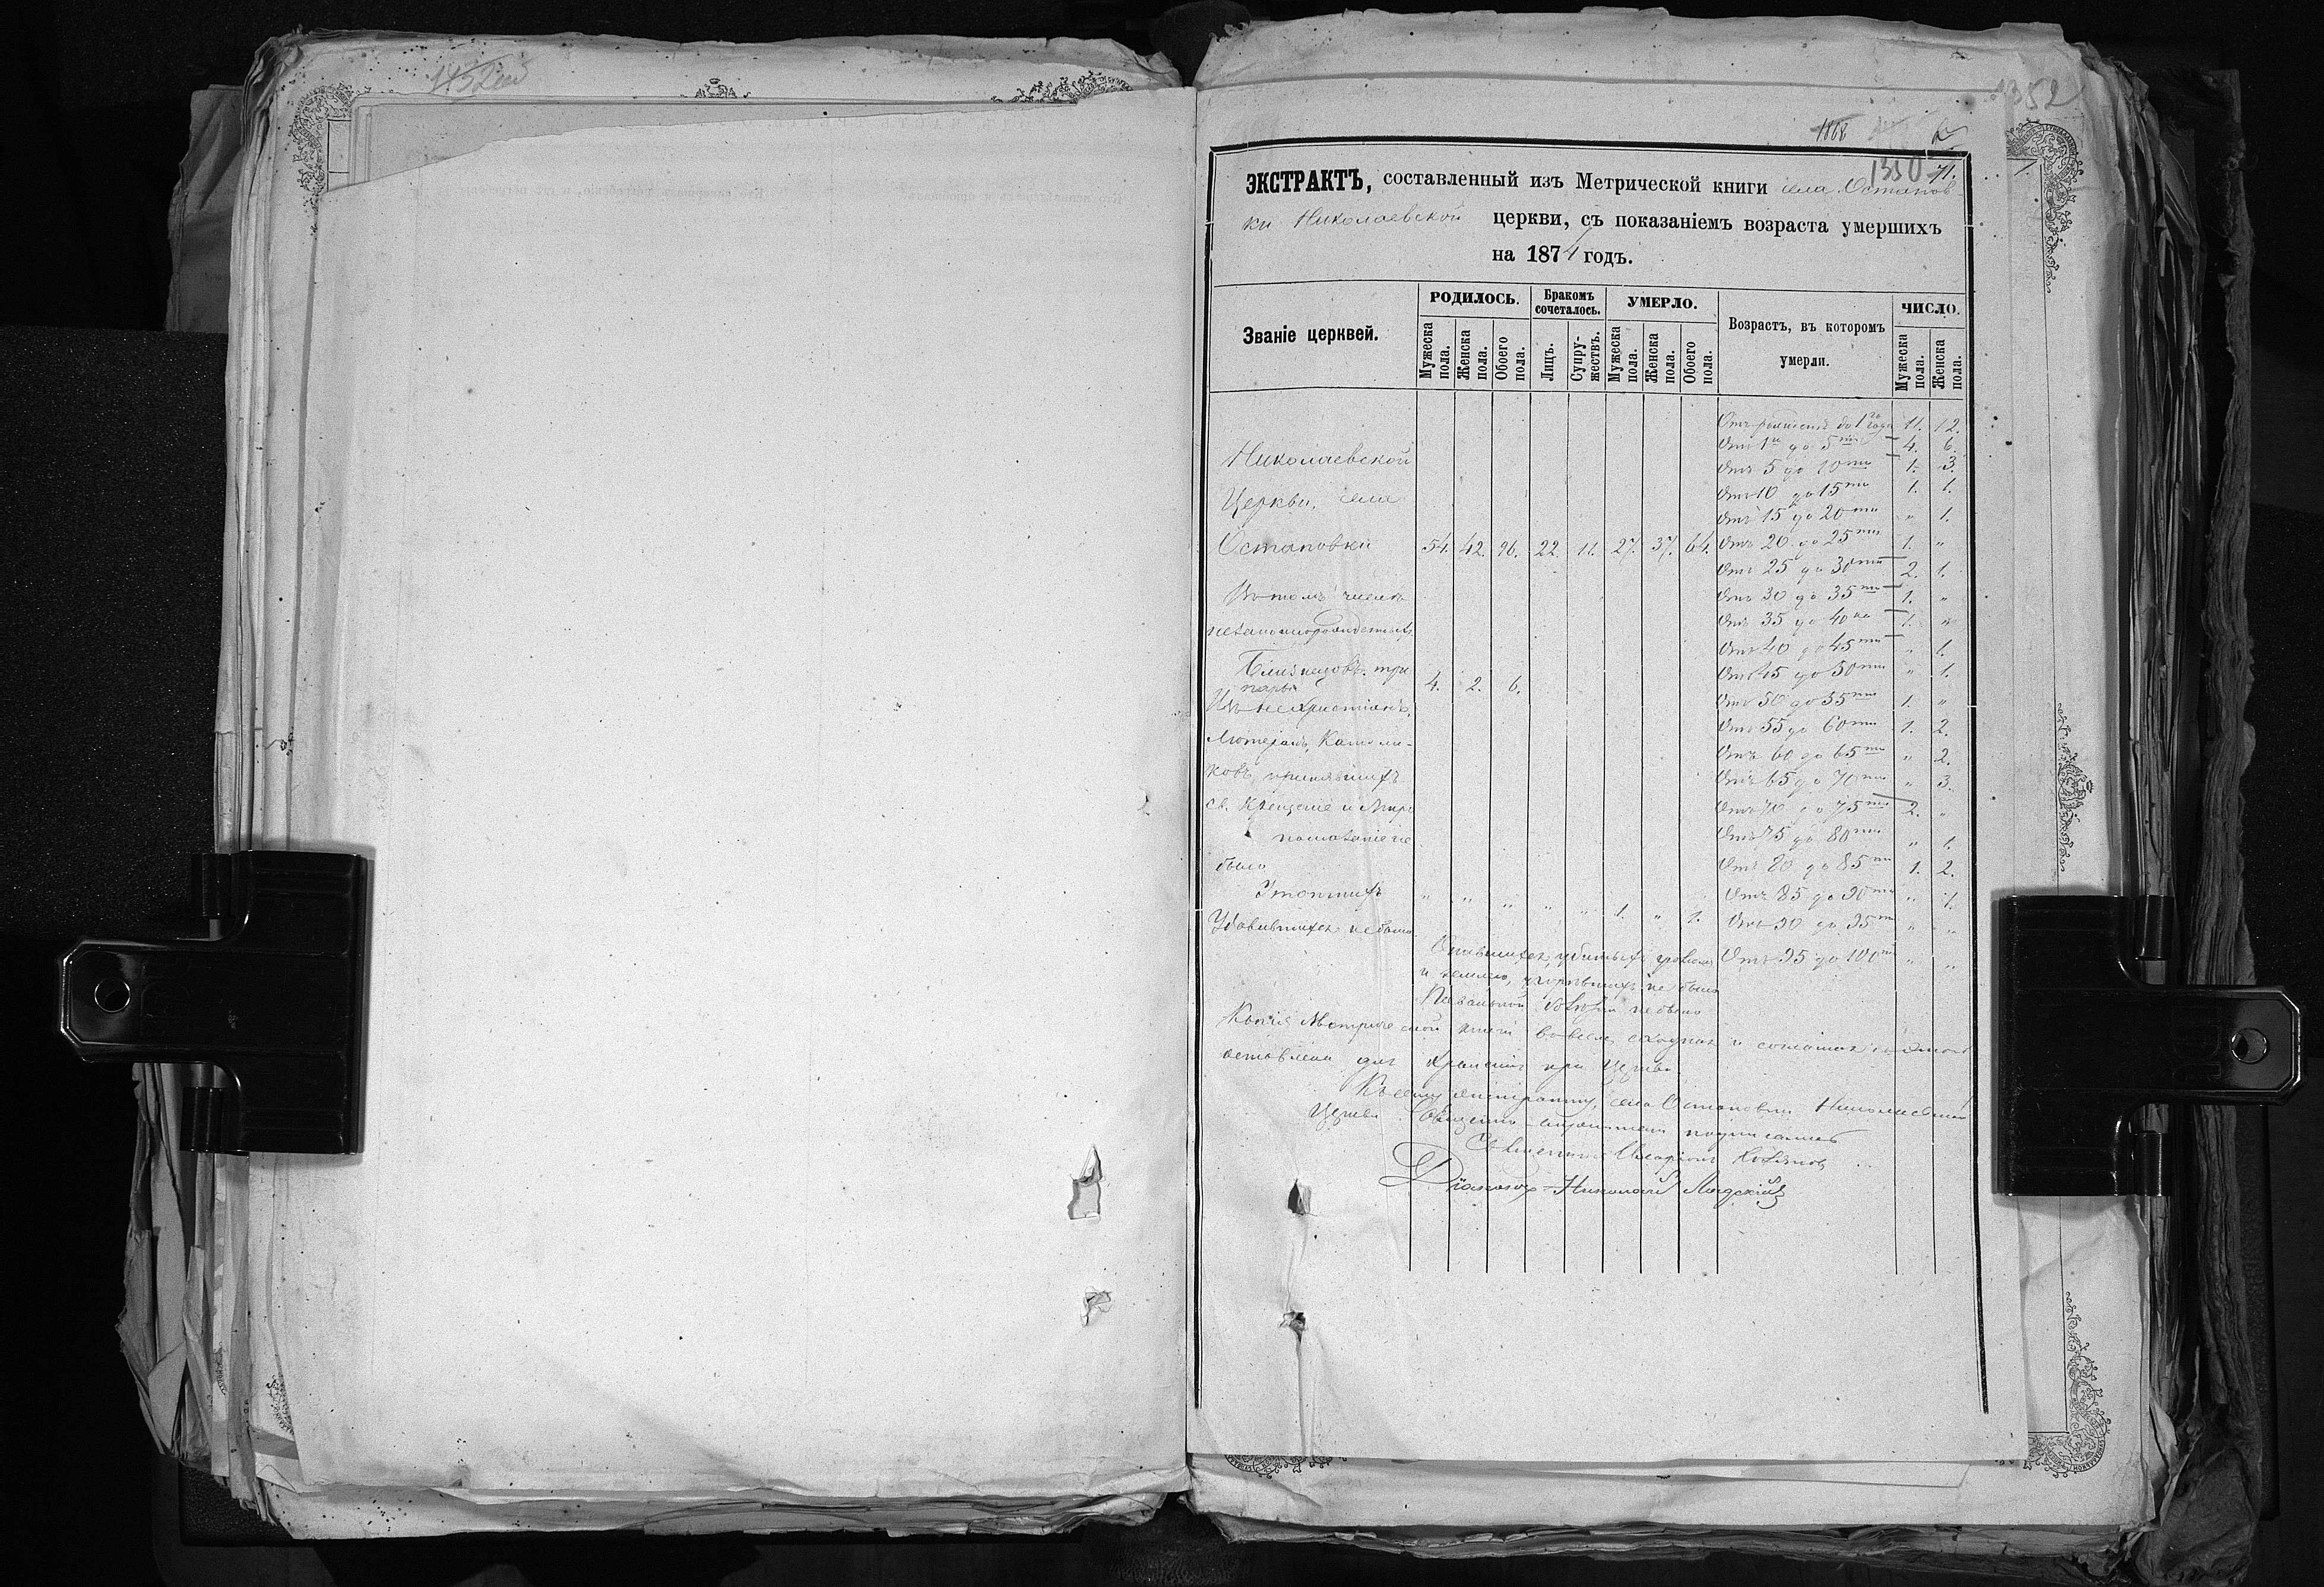 1452
1352
1868
1350
71.
ЭКСТРАКТЪ, составленный изъ Метрической книги села Останов
ки Николаевской церкви, съ показаніемъ возраста умершихъ
на 1874 годъ.
Званіе церквей.
РОДИЛОСЬ.
Мужеска пола.
Женска пола.
Обоего пола.
Бракомъ сочеталось.
Лицъ.
Супружествъ.
УМЕРЛО.
Мужеска пола.
Женска пола.
Обоего пола.
Возрастъ, въ которомъ умерли.
ЧИСЛО.
Мужеска пола.
Женска пола.
Отъ рожденія до 1го года 11. 12.
Отъ 1го до 5ти 4. 6.
Николаевской
Отъ 5 до 10ти 1. 3.
Отъ 10 до 15ти 1. 1.
Церкви, села
Отъ 15 до 20ти " 1.
Остановки 54. 42. 96. 22. 11. 27. 37. 64. Отъ 20 до 25ти 1. "
Отъ 25 до 30ти 2. 1.
Въ томъ числѣ
Отъ 30 до 35ти 1. "
незаконорожденныхъ
Отъ 35 до 40ка 1. "
Отъ 40 до 45ти " 1.
Близнецовъ три
пары 4. 2. 6.
Отъ 45 до 50ти " 1.
Изъ нехристіанъ,
Отъ 50 до 55ти 1. "
Лютеранъ, Католи-
Отъ 55 до 60ти 1. 2.
Отъ 60 до 65ти " 2.
ковъ, принявшихъ
Отъ 65 до 70ти " 3.
св. Крещеніе и Мѵро
Отъ 70 до 75ти 2. "
помазаніе не
Отъ 75 до 80ти " 1.
было
Отъ 80 до 85ти 1. 2.
Утопшихъ " " " " " 1. " 1.
Отъ 85 до 90та " 1.
Удавившихся небыло
Отъ 90 до 95ти " "
Опившихся, убитыхъ громомъ
Отъ 95 до 100та " "
и землею, угорѣвшихъ не было
Повальной болѣзни небыло
Копія Метрической книги во всемъ сходная и согласная съ
оставлена для храненія при Церкви.
Къ сему экстракту, села Остановки Николаевской
Церкви Священно-церковнослужители подписались
Священникъ Иларіонъ
Діаконъ Николай